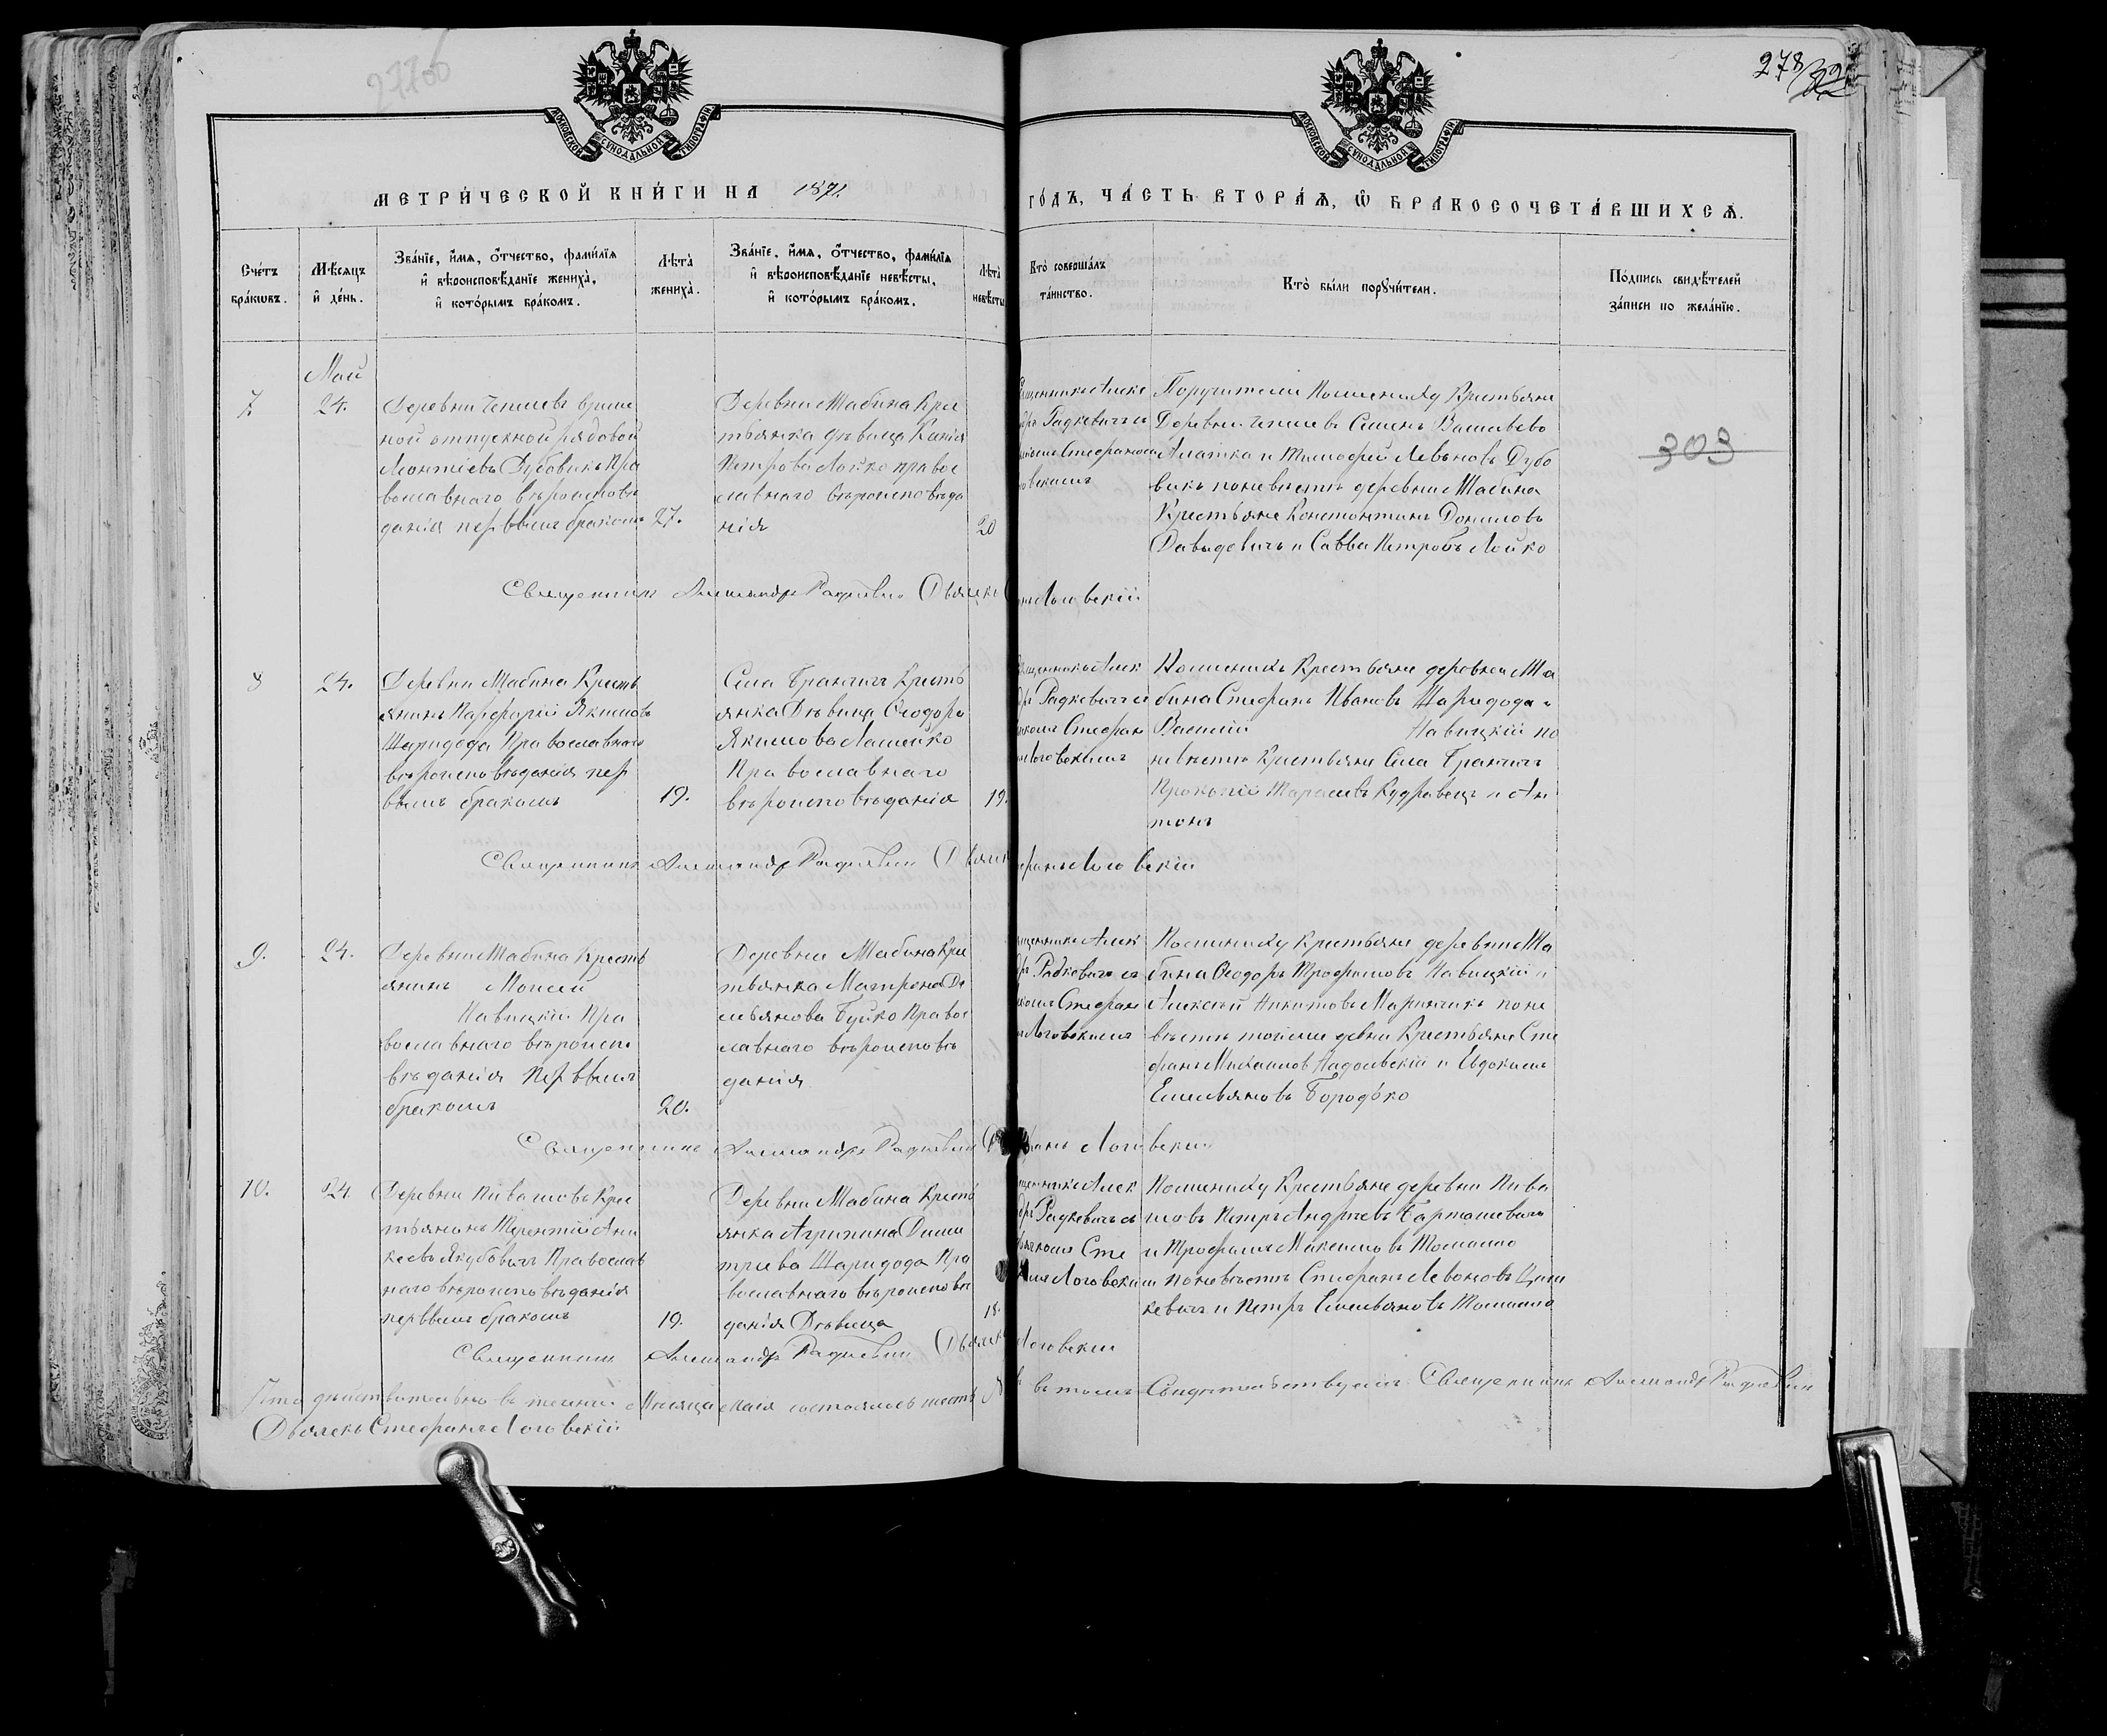 277об
278
МОСКОВСКОЙ СѴНОДАЛЬНОЙ ТИПОГРАФІИ
МОСКОВСКОЙ СѴНОДАЛЬНОЙ ТИПОГРАФІИ
МЕТРИ́ЧЕСКОЙ КНИ́ГИ НА 1871. ГО́ДЪ, ЧА́СТЬ ВТОРА́Ѧ, Ѽ БРАКОСОЧЕТА́ВШИХСѦ.
Сче́тъ бра́кѡвъ.
Мѣ́сяцъ и҆ де́нь.
Зва́нїе, и҆́мѧ, ѻ҆́тчество, фами́лїѧ
и҆ вѣроисповѣ́данїе жениха̀,
и҆ кото́рымъ бра́комъ.
Лѣта̀ жениха̀.
Зва́нїе, и҆́мѧ, ѻ҆́тчество, фами́лїѧ
и҆ вѣроисповѣ́данїе невѣ́сты,
и҆ кото́рымъ бра́комъ.
Лѣта̀ невѣсты
Кто̀ соверша́лъ та́инство.
Кто̀ бы́ли порꙋчи́тели.
По́дпись свидѣ́телей за́писи по жела́нїю.
Май
7.
24.
Деревни
ной отпускной рядовой
Леонтіевъ Дубовикъ Пра
вославнаго вѣроисповѣ
данія первымъ бракомъ
27.
Деревни Мабина Крес
тьянка дѣвица
Петрова Лойко правос
лавнаго вѣроисповѣда
нія
20
щенникъ Алекс
дръ Радкевичъ съ
Стефаном
овскимъ
Поручители По жениху Крестьяне
Деревни Семенъ
и Тимофей Левоновъ Дубо
викъ по невѣстѣ деревни Мабина
Крестьяне Константинъ Даниловъ
Давыдовичъ и Савва Петровъ Лойко
303
Священникъ Александръ Радкевичъ Дьячекъ Логовскій
8
24.
Деревни Мабина Кресть
янинъ Парфирій Якимовъ
Шаридода Православнаго
вѣроисповѣданія пер
вымъ бракомъ
19.
Села Бранчичъ Кресть
янка Дѣвица Ѳеодора
Якимова Лашейко
Православнаго
вѣроисповѣданія
19.
щенникъ Алек
дръ Радкевичъ съ
чкомъ Стефан
Логовскимъ
По женихѣ Крестьяне деревни Ма
бина Стефанъ Ивановъ Шаридода и
Василій Навицкій по
невѣстѣ Крестьяне Села Бранчичъ
Прокопій Тарасевъ Кудравецъ и Ан
тонъ
Священникъ Александръ Радкевичъ Дьячекъ Стефанъ Логовскій
9.
24.
Деревни Мабина Кресть
янинъ Моисей
Навицкій Пра
вославнаго вѣроиспо
вѣданія первымъ
бракомъ
20.
Деревни Мабина Крес
тьянка Матрона Де
мьянова Буйко Правос
лавнаго вѣроисповѣ
данія
щенникъ Алек
дръ Радкевичъ съ
чкомъ Стефан
Логовскимъ
По жениху Крестьяне деревни Ма
бина Ѳеодоръ Трофимовъ Навицкій и
Алексѣй Никитовъ Маринчикъ по не
вѣстѣ той же девни Крестьяне Сте
фанъ Михаиловъ Надольскій и Евдокимъ
Емельяновъ Бородко
Священникъ Александръ Радкевичъ Стефанъ Логовскій
10.
24
Деревни Пивашовъ Крес
тьянинъ Терентій Ани
кеевъ Якубовичъ Православ
наго вѣроисповѣданія
первымъ бракомъ
19.
Деревни Мабина Кресть
янка Агрипина Дими
тріева Шаридода Пра
вославнаго вѣроисповѣ
данія Дѣвица
18.
щенникъ Алек
дръ Радкевичъ съ
чкомъ Сте
Логовским
По жениху Крестьяне деревни Пива
шовъ Петръ Андреевъ Барташевичъ
и Трофимъ Максимовъ Томашо
по невѣстѣ Стефанъ Левоновъ
кевичъ и Петръ Емельяновъ Томашо
Священникъ Александръ Радкевичъ Дьячекъ Логовскій
Что дѣйствительно въ теченіи Мѣсяца Мая состоялось шесть въ томъ Свидѣтельствуемъ Священникъ Александръ Радкевичъ
Дьячекъ Стефанъ Логовскій